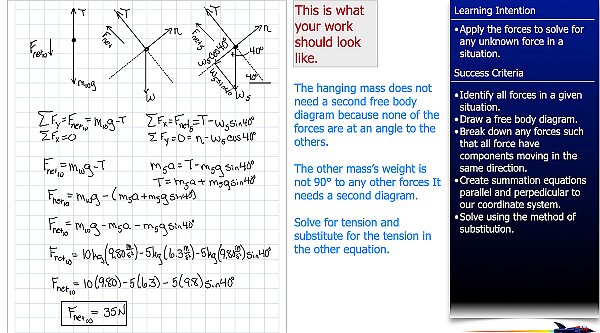 T
F_net10
m_10g
T
F_net5
n
W
T
F_net5
n
W_5cos40°
40°
W_5sin40°
W_5
40°
ΣF_y=F_net10=m_10g-T
ΣF_x=0
ΣF_x=F_net5=T-W_5sin40°
ΣF_y=0=n-W_5cos40°
F_net10=m_10g-T
m_5a=T-m_5gsin40°
T=m_5a+m_5gsin40°
F_net10=m_10g-(m_5a+m_5gsin40°)
F_net10=m_10g-m_5a-m_5gsin40°
F_net10=10kg(9.80m/s²)-5kg(6.3m/s²)-5kg(9.80m/s²)sin40°
F_net10=10(9.80)-5(6.3)-5(9.8)sin40°
F_net10=35N
This is what
your work
should look
like.
The hanging mass does not
need a second free body
diagram because none of the
forces are at an angle to the
others.
The other mass's weight is
not 90° to any other forces It
needs a second diagram.
Solve for tension and
substitute for the tension in
the other equation.
Learning Intention
•Apply the forces to solve for
any unknown force in a
situation.
Success Criteria
•Identify all forces in a given
situation.
•Draw a free body diagram.
•Break down any forces such
that all force have
components moving in the
same direction.
•Create summation equations
parallel and perpedicular to
our coordinate system.
•Solve using the method of
substitution.